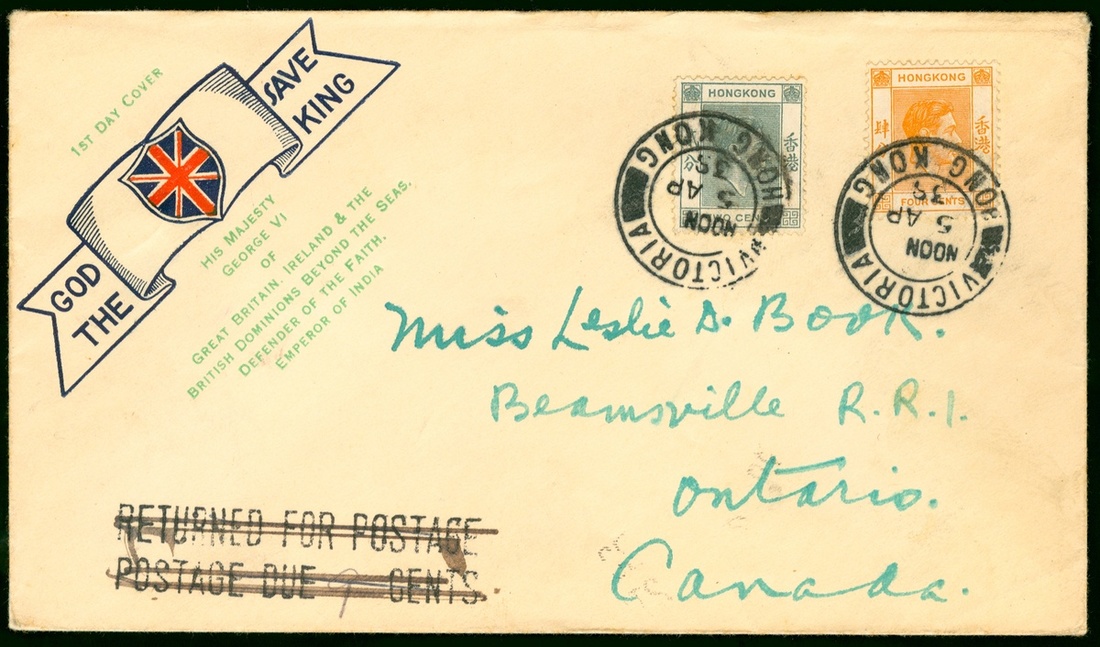 1ST DAY COVER
GOD SAVE
THE KING
HIS MAJESTY
GEORGE VI
OF
GREAT BRITAIN, IRELAND & THE
BRITISH DOMINIONS BEYOND THE SEAS,
DEFENDER OF THE FAITH,
EMPEROR OF INDIA
HONGKONG
香港
分
TWO CENTS
VICTORIA
HONG KONG
NOON
5
AP
38
HONGKONG
香港
肆
FOUR CENTS
VICTORIA
HONG KONG
NOON
5
AP
38
Miss Leslie D. Book.
Beamsville R.R.1.
Ontario.
Canada.
RETURNED FOR POSTAGE
POSTAGE DUE CENTS